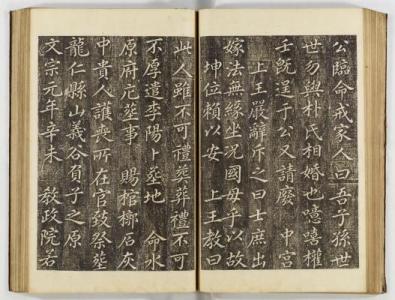 公臨命戒家人曰吾子孫世
世勿與朴氏相婚也噫嘻權
壬旣逞于公又請廢　中宮
上王嚴辭斥之曰士庶出
嫁法無緣坐况國母乎以故
坤位賴以安　上王教曰
此人雖不可禮葬葬禮不可
不厚遣李陽卜葬地　命水
原府庀葬事　賜棺槨石灰
中貴人護喪所在官致祭葬
龍仁縣山義谷負子之原
文宗元年辛未　敎政院若